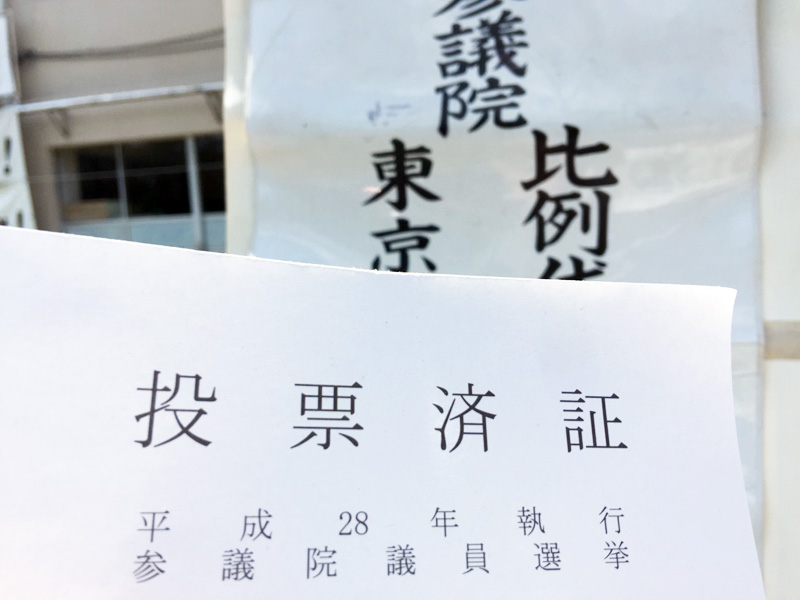 参議院
比例代
東京
投票済証
平成28年執行
参議院議員選挙